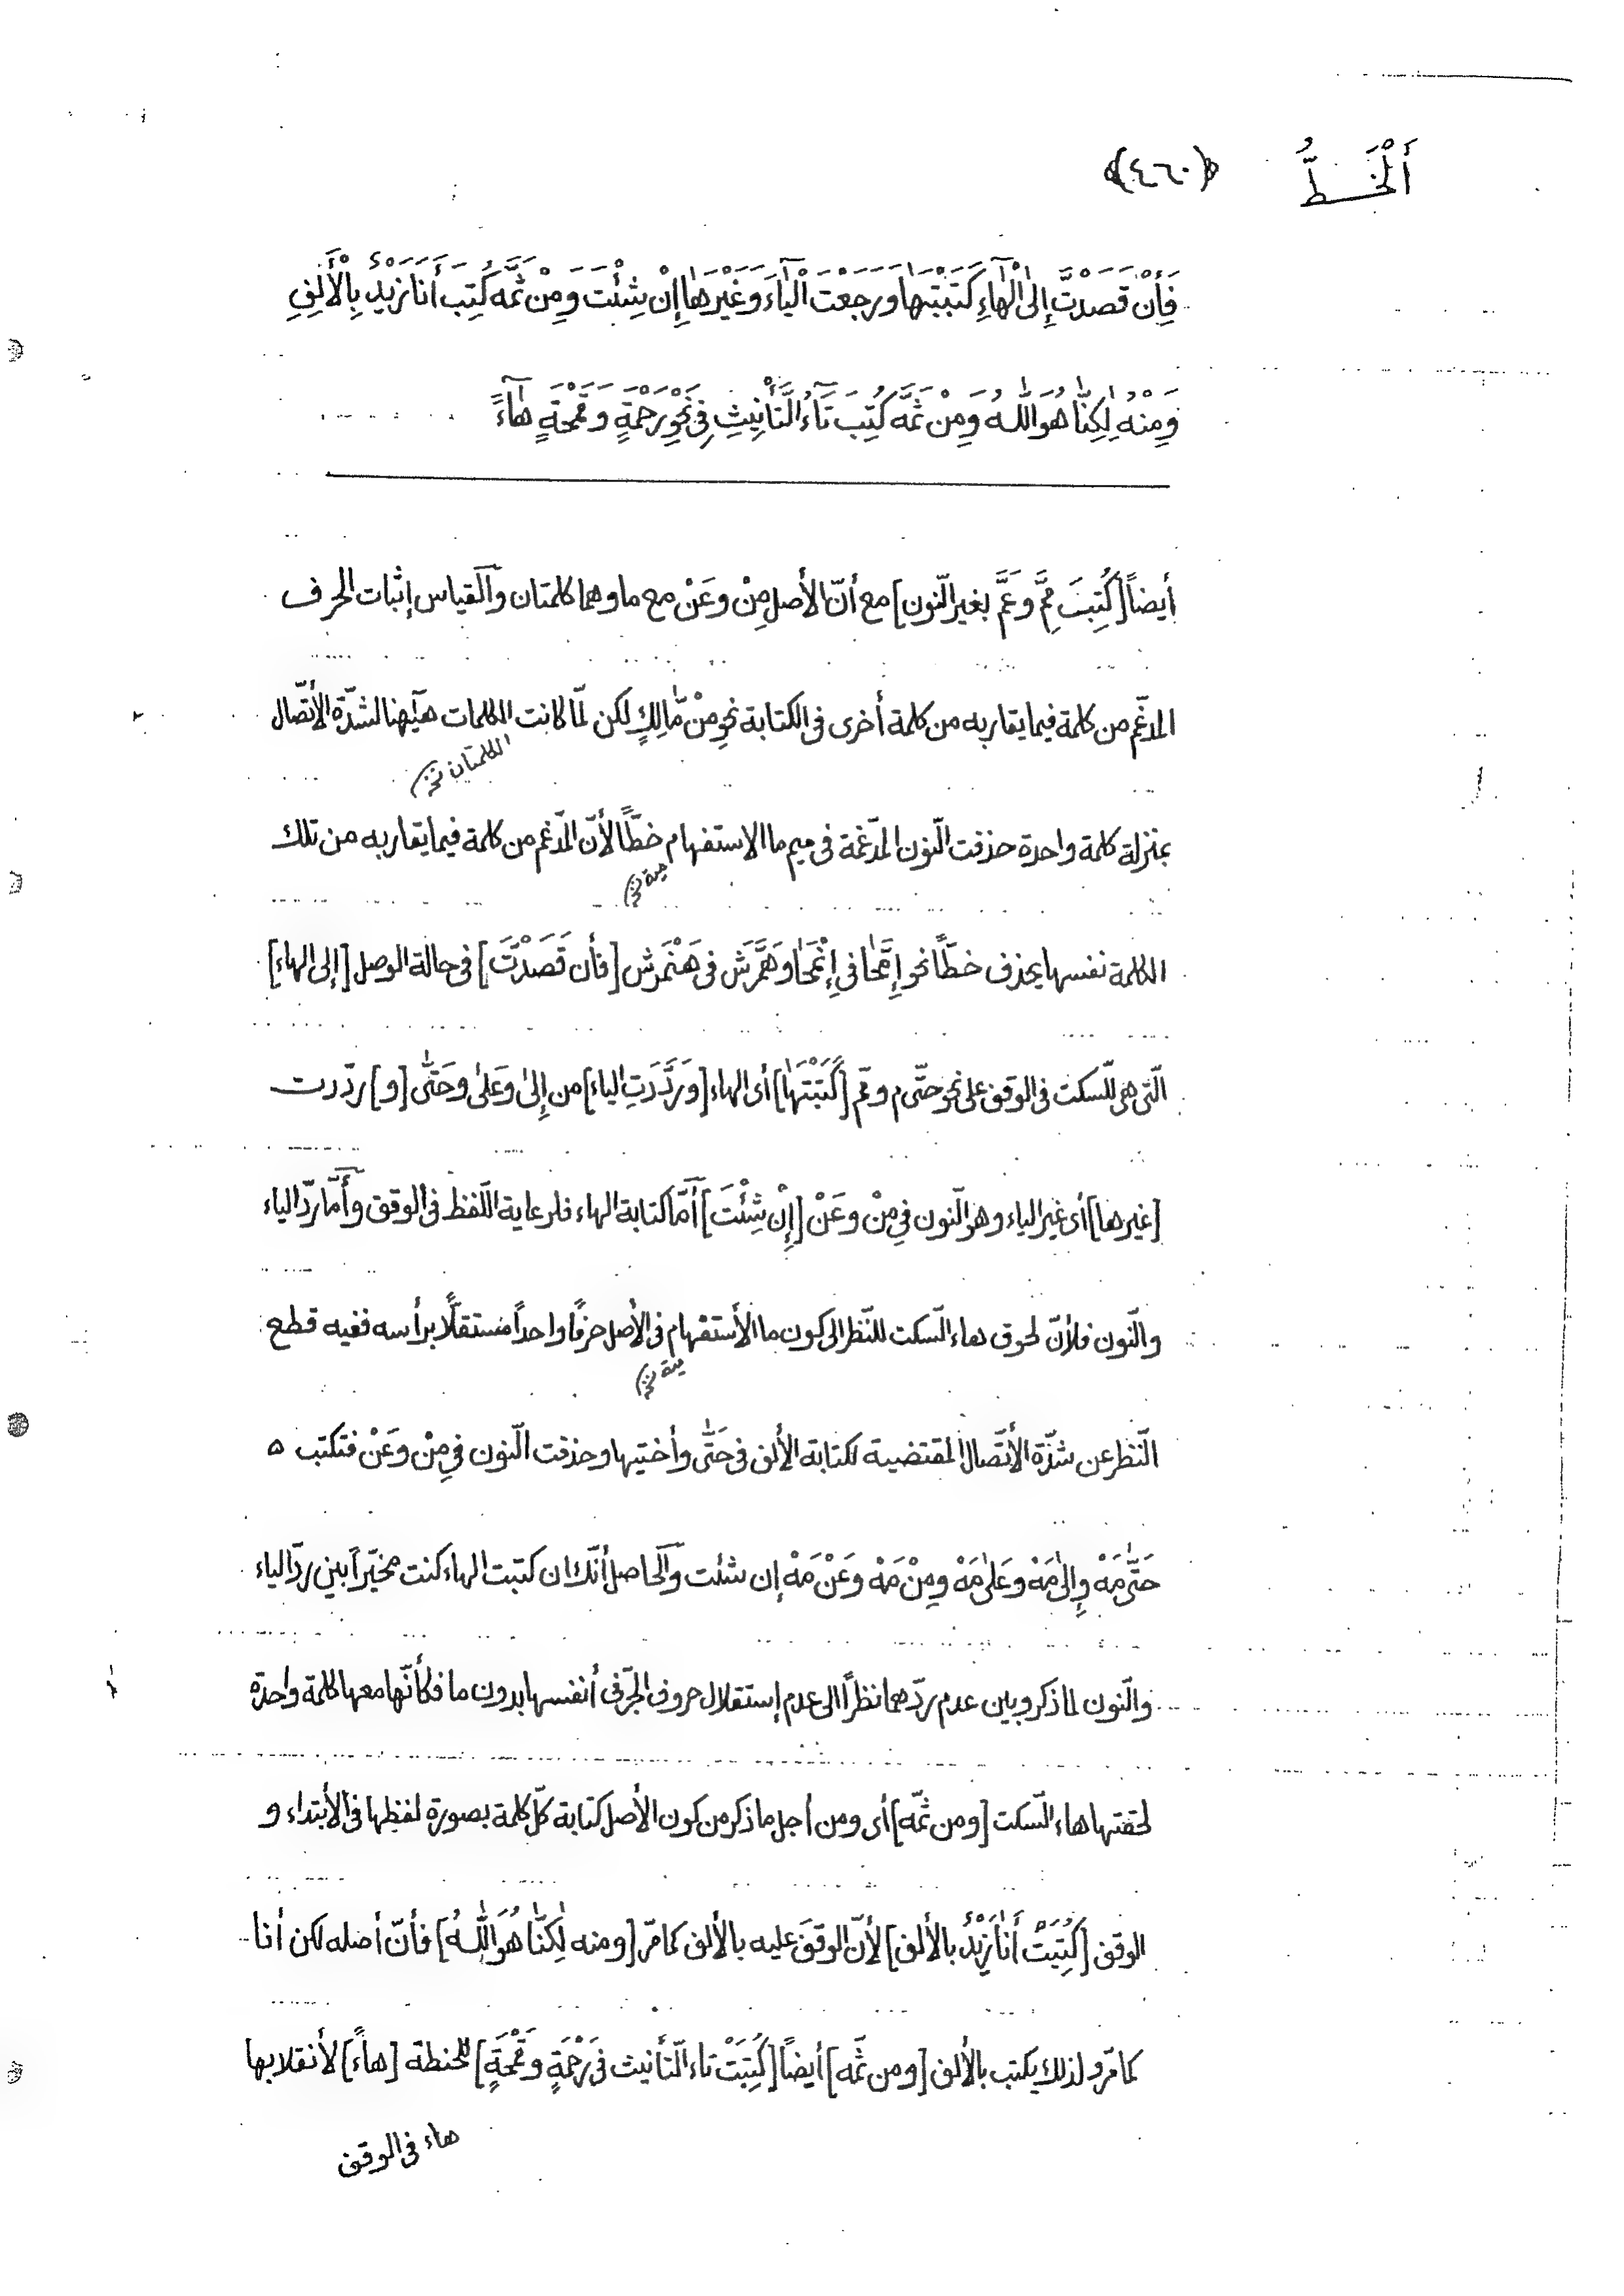 أَلْخَطُّ ﴿٤٦٠﴾
فَأِنْ قَصَدْتَّ إِلىٰ الْهٰآءِ كَتَبْتَهٰا وَرَجَعْتَ الْيٰآءَ وَغَيْرَهٰا إِنْ شِئْتَ وَمِنْ ثَمَّه كُتِبَ أَنَا زَيْدٌ بِالْأَلِفِ
وَمِنْهُ لٰكِنّٰا هُوَ اللّٰهُ وَمِنْ ثَمَّه كُتِبَ تَآءُ التَّأْنِيثِ فِى نَحْوِ رَحْمَةٍ وَقَمْحَةٍ هٰآءً
أيضاً [كُتِبَ مِمَّ وَعَمَّ بغير النّون] مع أنّ الأصل مِنْ وعَنْ مع ما وهما كلمتان وَالقياس إثبات الحرف
المدغّم من كلمة فيما يقاربه من كلمة أخرى فى الكتابة نحو مِنْ مّٰالِكٍ لكن لمّا كانت الكلمات هيٰهنا لشدّة الأتّصال
الكلمتان نخ)
بمنزلة كلمة واحدة حذفت النّون المدّغمة فى ميم ما الاستفهام خطّاً لأنّ المدّغم من كلمة فيما يقاربه من تلك
مية نخ)
الكلمة نفسها يحذف خطّاً نحو إِمَّحٰا فى إِنْمَحٰا وهَمَّرَش فى هَنْمَرش [فأن قَصَدْتَّ] فى حالة الوصل [إلى الهاء]
الّتى هى للسّكت فى الوقف على نحو حتّى م وعم [كَتَبْتَهٰا] أى الهاء [وَرَدَّرَتِ الياء] من إِلىٰ وعَلىٰ وحَتّٰى [و] ردّرت
[غيرها] أى غير الياء وهو النّون فى مِنْ وعَنْ [إِنْ شِئْتَ] أَمّا كتابة الهاء فلرعاية اللّفظ فى الوقف وأَمّا ردّ الياء
والنّون فلأنّ لحوق هاء السّكت للنّظر الى كون ما الأستفهام فى الأصل حرفاً واحداً مستقلّاً برأسه ففيه قطع
مية نخ)
النّظر عن شدّة الأتّصال المقتضية لكتابة الألف فى حَتّٰى وأختيها وحذفت النّون فى مِنْ وعَنْ فتكتب ه
حَتّٰى مَهْ وإِلىٰ مَهْ وعَلىٰ مَهْ ومِنْ مَهْ وعَنْ مَهْ إن شئت وَالحاصل أنّك ان كتبت الهاء كنت مخيّراً بين ردّ الياء
والنّون لما ذكر وبين عدم ردّهما نظراً الى عدم إستقلال حروف الجرّ فى أنفسها بدون ما فكأنّها معها كلمة واحدة
لحقتها هاء السّكت [ومن ثمّه] أى ومن أجل ما ذكر من كون الأصل كتابة كلّ كلمة بصورة لفظها فى الأبتداء و
الوقف [كُتِبَتْ أَنَا زَيْدٌ بالألف] لأنّ الوقف عليه بالألف كما مرّ [ومنه لٰكِنّٰا هُوَ اللّٰهُ] فأنّ أصله لكن أنا
كما مرّ ولذلك يكتب بالألف [ومن ثمّه] أيضاً [كُتِبَتْ تاء التّأنيث فى رَحْمَةٍ وقَمْحَةٍ] للحنطة [هاءً] لأنقلابها
هاء فى الوقف